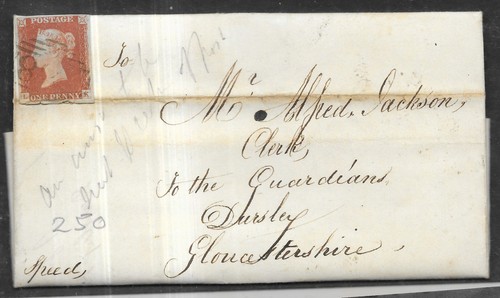 POSTAGE
ONE PENNY
To
Mr. Alfred Jackson,
Clerk,
To the Guardians
Dursley
Gloucestershire
Speed,
250